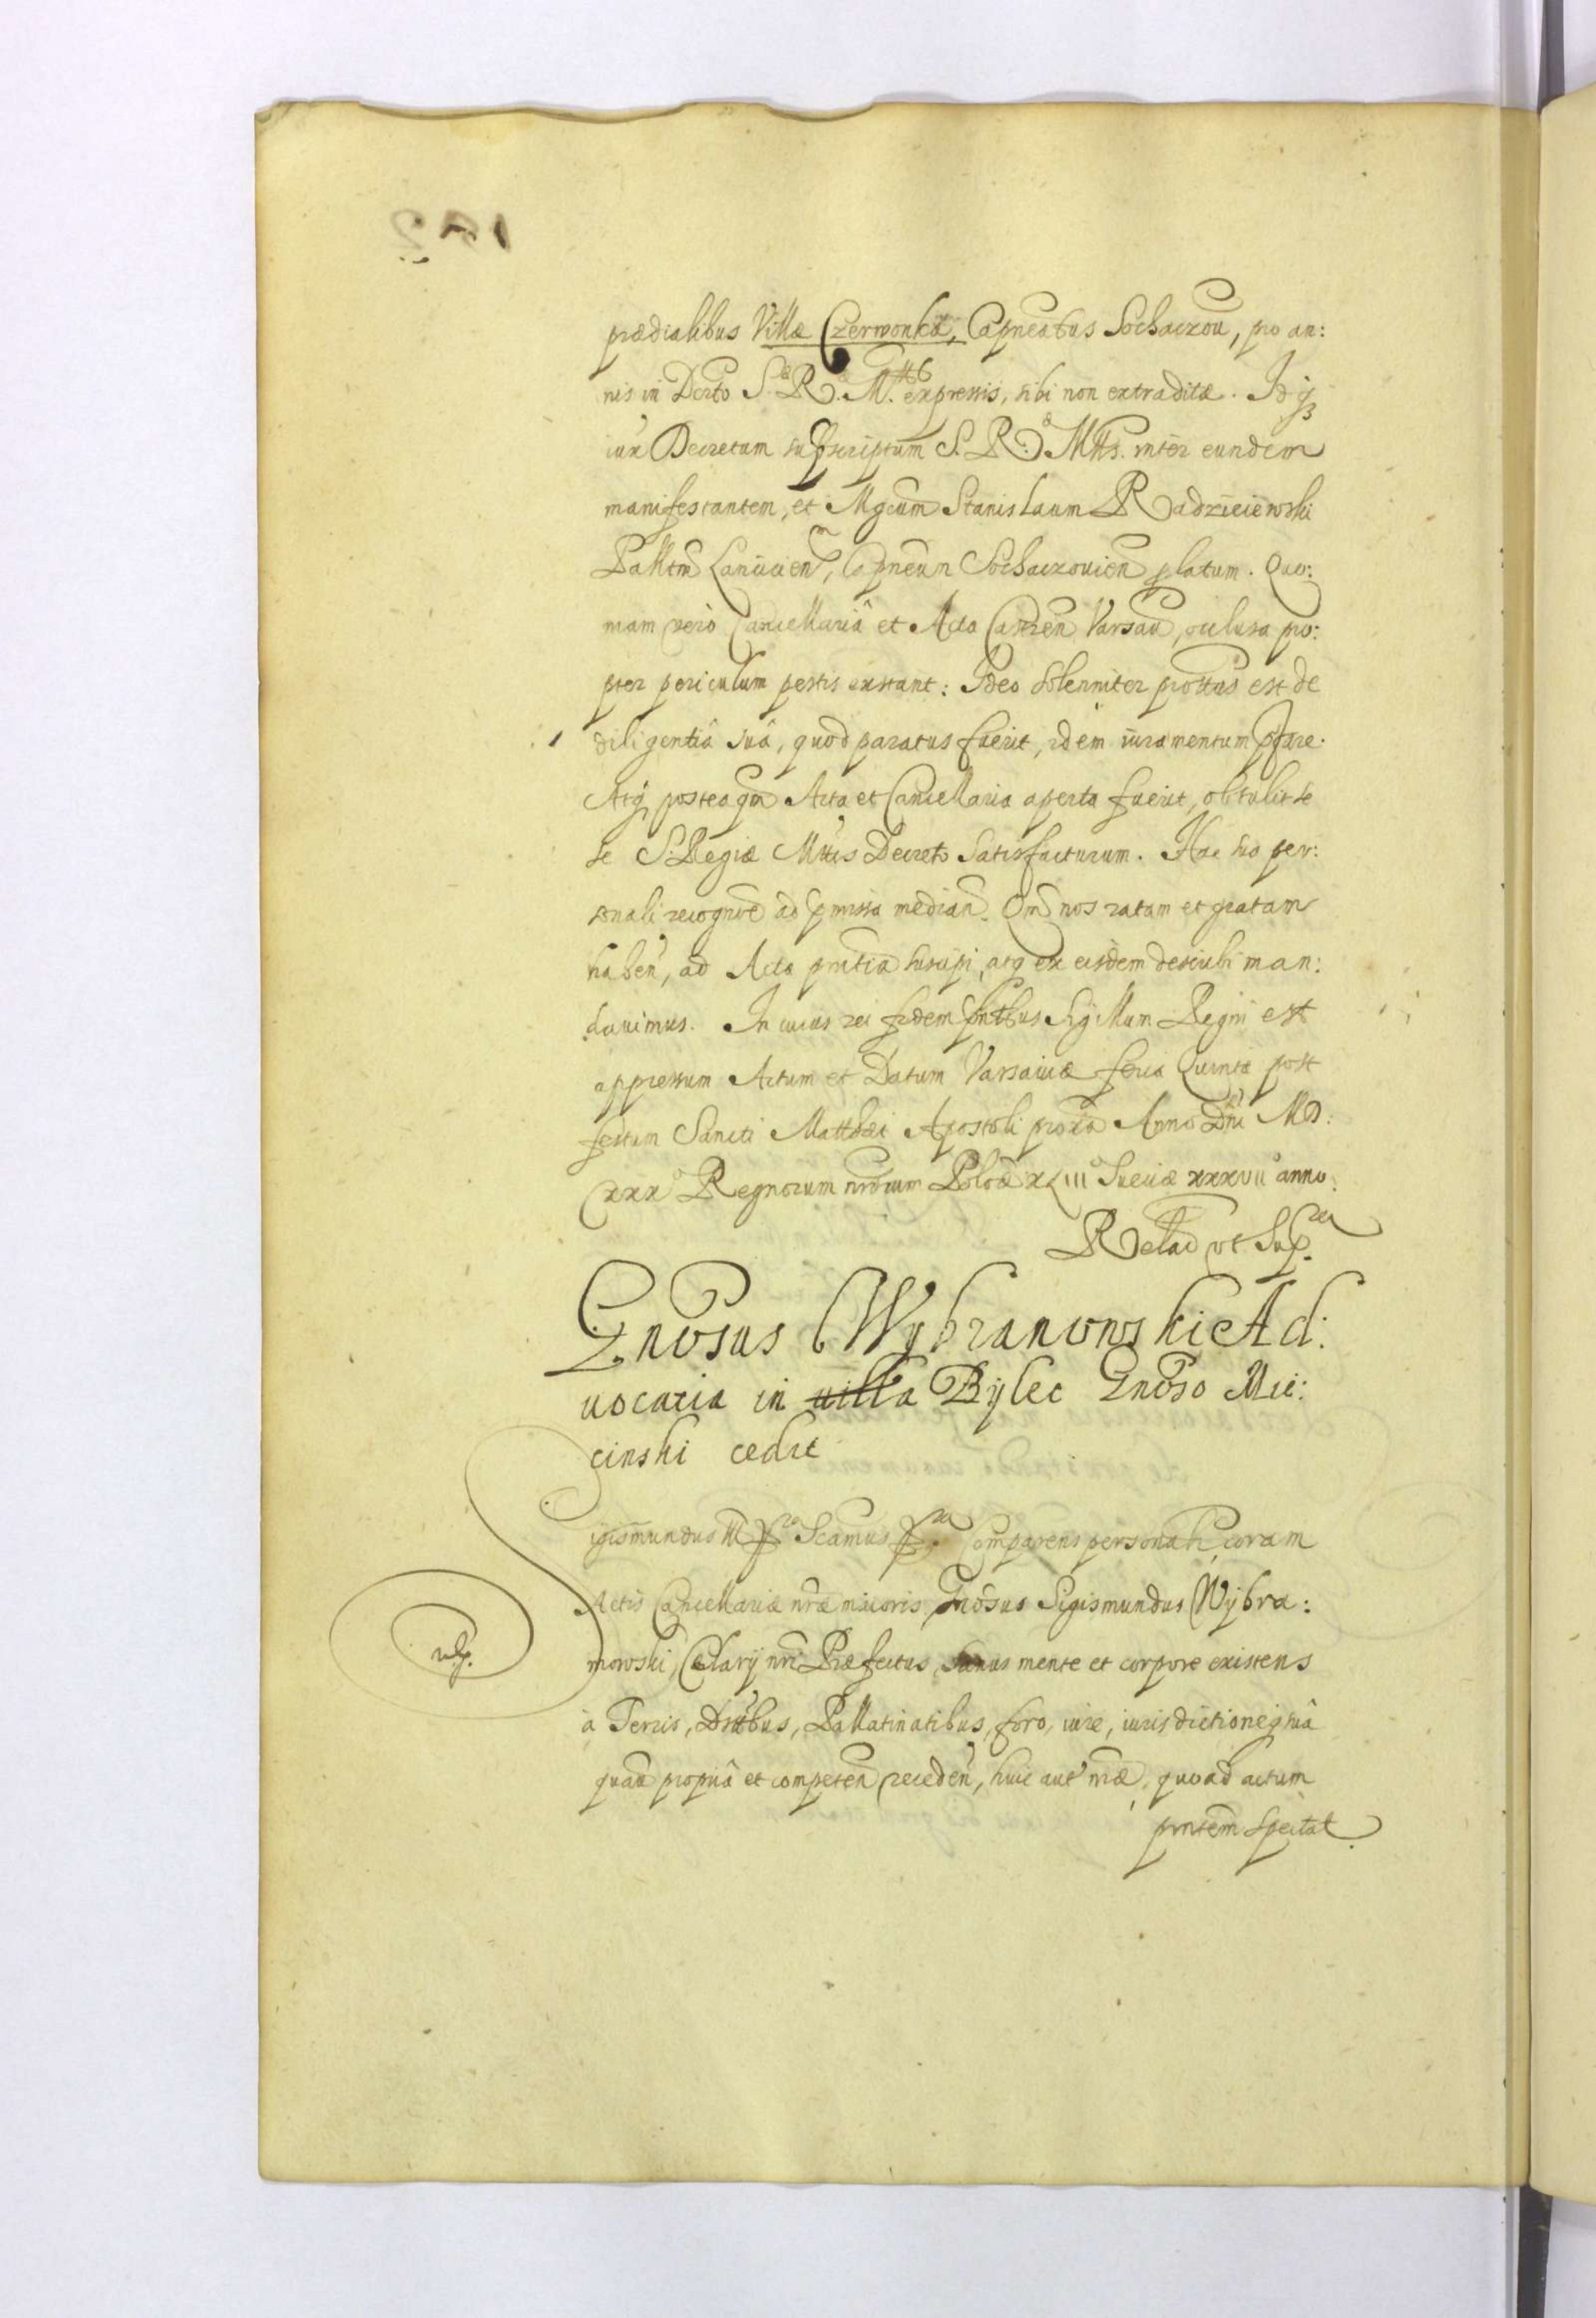 prædialibus Villæ Czerwonka, Capneatus Sochaczou, pro an:
nis in Dcrto S. R. M. expressis, sibi non extraditæ. Idq
iux Decretum suprscriptum S. R. Mttis. inter eundem
manifestantem, et Mgcum Stanislaum Radzieiewski
Palltm Lancicien, Capneum Sochaczouien platum. Quo:
niam vero Cancellaria et Acta Castren Varsau, occlusa pro:
pter periculum pestis exstant: Ideo solenniter prottus est de
diligentiâ suâ, quod paratus fuerit, idem iuramentum pstare.
Atq posteaqm Acta et Cancellaria aperta fuerit, obtulit se
se S. Regiæ Mttis Decreto satisfacturum. Hac sua per:
sonali recognitne ad pmissa median. Qm nos ratam et gratam
haben, ad Acta pntia suscipi, atq ex eisdem describi man:
dauimus. In cuius rei fidem pntbus Sigillum Regni est
appressum Actum et Datum Varsauiæ feria Quinta post
festum Sancti Matthæi Apostoli proxa Anno Dni MD:
CXXX Regnorum nrorum Poloæ XLIII Sueciæ XXXVII anno:
Relao vt Supra
Gnosus Wybranowski Ad:
uocatia in villa Bylec Gnoso Mie:
cinski cedit
igismundus III Scamus Comparens personalr coram
Actis Cancellariæ nræ minoris Gnosus Sigismundus Wybra:
nowski, Cellarij nri Præfectus, sanus mente et corpore existens
à Terris, Dttbus, Pallatinatibus, foro, iure, iurisdictioneq suâ
quau propriâ et competen receden, huic aut nræ, quoad actum
pntem spectat